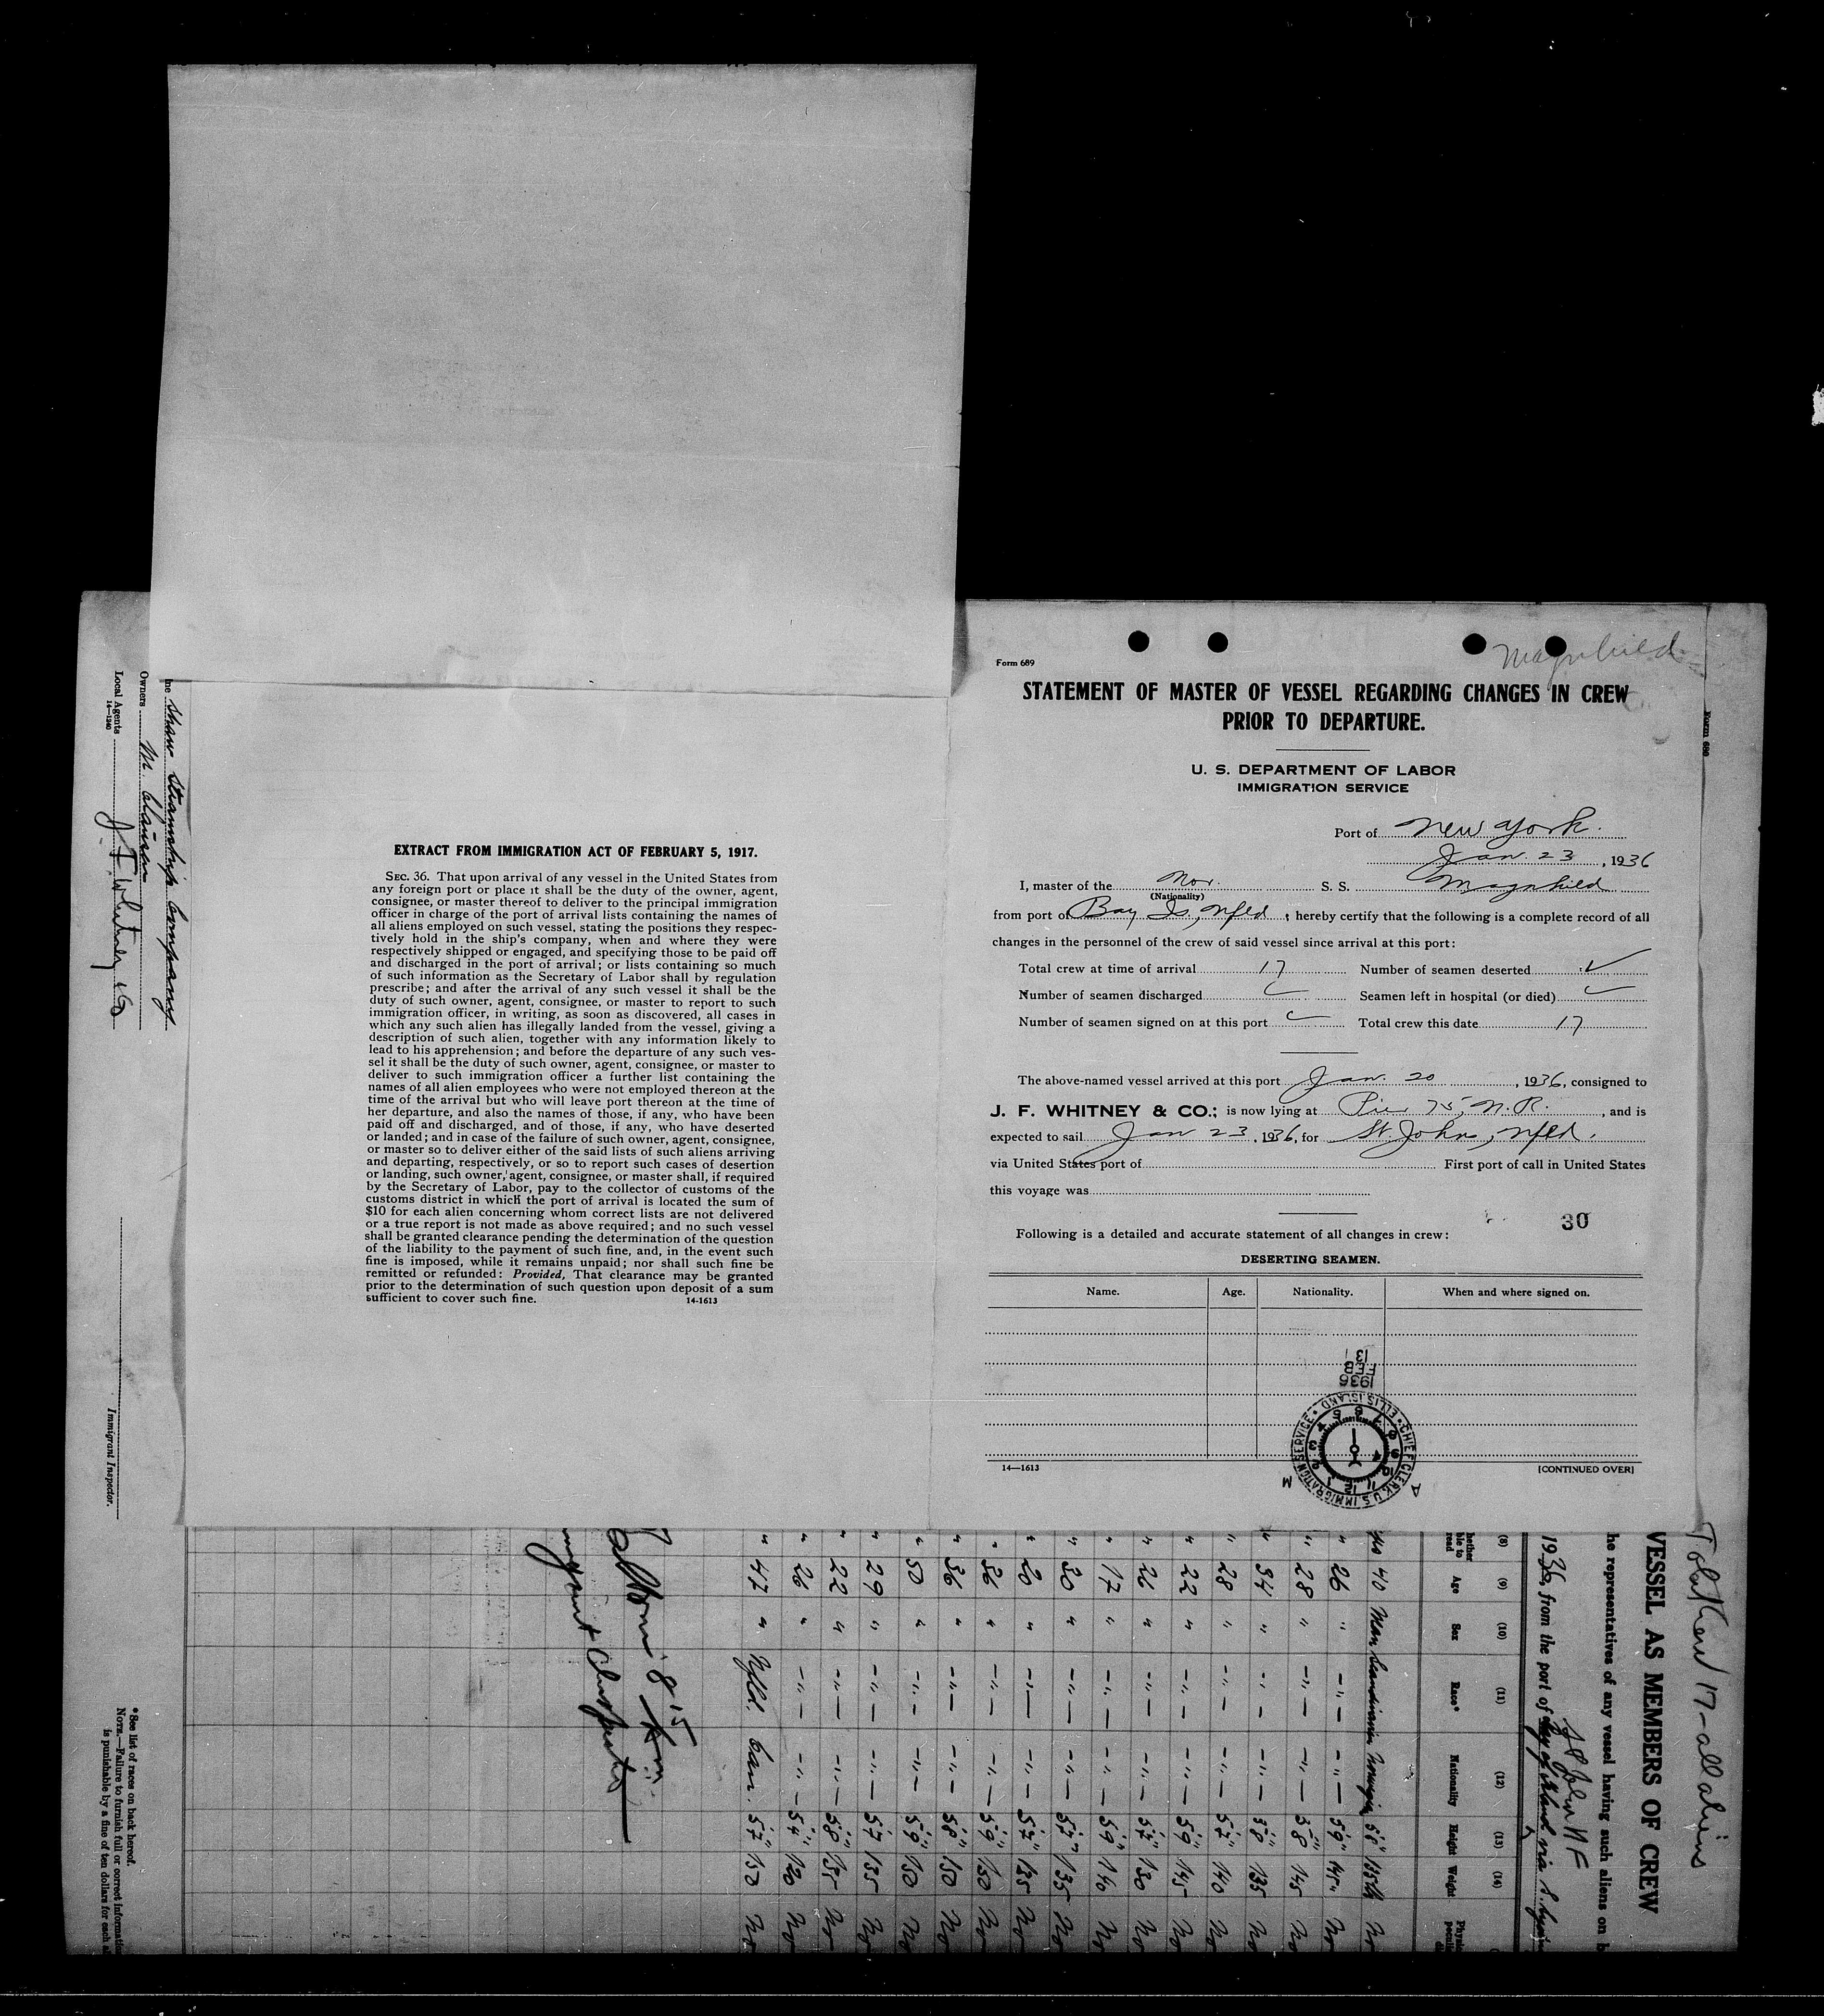 Magnhild
Form 689
STATEMENT OF MASTER OF VESSEL REGARDING CHANGES IN CREW
PRIOR TO DEPARTURE.
U. S. DEPARTMENT OF LABOR
IMMIGRATION SERVICE
Port of New York.
Jan. 23, 1936
I, master of the Nor. S. S. Magnhild
(Nationality)
from port of Bay Is, Nfld, hereby certify that the following is a complete record of all
changes in the personnel of the crew of said vessel since arrival at this port:
Total crew at time of arrival 17 Number of seamen deserted ✓
Number of seamen discharged ✓ Seamen left in hospital (or died) ✓
Number of seamen signed on at this port ✓ Total crew this date 17
The above-named vessel arrived at this port Jan. 20, 1936, consigned to
J. F. WHITNEY & CO.; is now lying at Pier 75, N.R., and is
expected to sail Jan 23, 1936, for St. Johns, Nfld.
via United States port of First port of call in United States
this voyage was
30
Following is a detailed and accurate statement of all changes in crew:
DESERTING SEAMEN.
Name. Age. Nationality. When and where signed on.
1936
FEB
13
CHIEF CLERK U.S. IMMIGRATION SERVICE • ELLIS ISLAND •
A M
14—1613 [CONTINUED OVER]
EXTRACT FROM IMMIGRATION ACT OF FEBRUARY 5, 1917.
SEC. 36. That upon arrival of any vessel in the United States from
any foreign port or place it shall be the duty of the owner, agent,
consignee, or master thereof to deliver to the principal immigration
officer in charge of the port of arrival lists containing the names of
all aliens employed on such vessel, stating the positions they respec-
tively hold in the ship's company, when and where they were
respectively shipped or engaged, and specifying those to be paid off
and discharged in the port of arrival; or lists containing so much
of such information as the Secretary of Labor shall by regulation
prescribe; and after the arrival of any such vessel it shall be the
duty of such owner, agent, consignee, or master to report to such
immigration officer, in writing, as soon as discovered, all cases in
which any such alien has illegally landed from the vessel, giving a
description of such alien, together with any information likely to
lead to his apprehension; and before the departure of any such ves-
sel it shall be the duty of such owner, agent, consignee, or master to
deliver to such immigration officer a further list containing the
names of all alien employees who were not employed thereon at the
time of the arrival but who will leave port thereon at the time of
her departure, and also the names of those, if any, who have been
paid off and discharged, and of those, if any, who have deserted
or landed; and in case of the failure of such owner, agent, consignee,
or master so to deliver either of the said lists of such aliens arriving
and departing, respectively, or so to report such cases of desertion
or landing, such owner, agent, consignee, or master shall, if required
by the Secretary of Labor, pay to the collector of customs of the
customs district in which the port of arrival is located the sum of
$10 for each alien concerning whom correct lists are not delivered
or a true report is not made as above required; and no such vessel
shall be granted clearance pending the determination of the question
of the liability to the payment of such fine, and, in the event such
fine is imposed, while it remains unpaid; nor shall such fine be
remitted or refunded: Provided, That clearance may be granted
prior to the determination of such question upon deposit of a sum
sufficient to cover such fine.
14-1613
Form 680
Total Crew 17 - all aliens
VESSEL AS MEMBERS OF CREW
he representatives of any vessel having such aliens on b
St John N F
1936, from the port of Bay of Island via
(8) (9) (10) (11) (12) (13) (14)
hether ble to read Age Sex Race* Nationality Height Weight
40 Man Scandinavia 5'8"
" 26 " —"— —"— 5'9" 145 No
" 28 " —"— —"— 5'8" 145 No
" 34 " —"— —"— 5'8" 135 No
" 28 " —"— —"— 5'7" 140 No
" 22 " —"— —"— 5'9" 145 No
" 26 " —"— —"— 5'7" 130 No
" 17 " —"— —"— 5'9" 140 No
" 30 " —"— —"— 5'7" 135 No
" 20 " —"— —"— 5'7" 135 No
" 26 " —"— —"— 5'9" 150 No
" 36 " —"— —"— 5'8" 150 No
" 50 " —"— —"— 5'9" 150 No
" 29 " —"— —"— 5'7 135 No
" 22 " —"— —"— 5'8" 155 No
" 26 " —"— —"— 5'4" 120 No
" 47 " Nfld. Can. 5'7" 150 No
Shaw Steamship Company
Owners M. Clausen
Local Agents J F Whitney Co
14—1240
Immigrant Inspector.
*See list of races on back hereof.
NOTE.—Failure to furnish full or correct informati
is punishable by a fine of ten dollars for each al